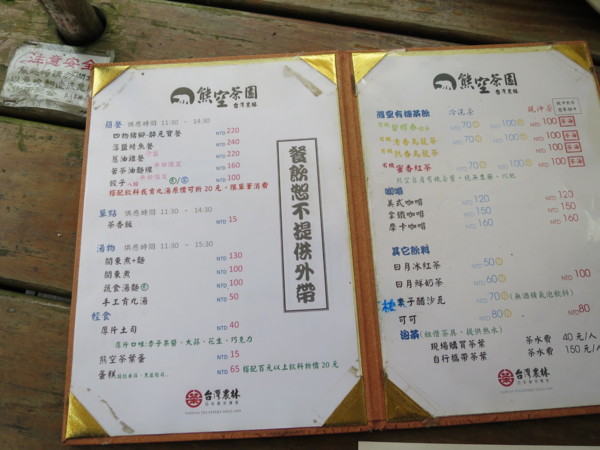 注意安全
熊空茶園
台灣農林
簡餐 供應時間 11:30 - 14:30
四物豬腳-歸元寶餐 NTD 220
蔥油雞餐 NTD 240
NTD 220
NTD 160
餃子 NTD 100
單點 供應時間 11:30 - 14:30
茶香飯 NTD 15
湯物 供應時間 11:30 - 15:30
關東煮+麵 NTD 130
關東煮 NTD 100
蔬食湯麵 NTD 100
手工貢丸湯 NTD 50
輕食
厚片土司 NTD 40
厚片口味:香芋果醬、大蒜、花生、巧克力
熊空茶葉蛋 NTD 15
蛋糕 NTD 65 搭配百元以上飲料物價 20 元
台灣農林
餐飲恕不提供外帶
熊空茶園
台灣農林
熊空有機茶飲 冷泡茶 現沖茶
有機 NTD 70 NTD 100 NTD 100
有機 清香烏龍茶 NTD 70 NTD 100 NTD 100
有機 NTD 70 NTD 100 NTD 100
有機 蜜香紅茶 NTD 70 NTD 100 NTD 100
咖啡
美式咖啡 NTD 120
拿鐵咖啡 NTD 150
摩卡咖啡 NTD 160
其它飲料
日月冰紅茶 NTD 50
日月鮮奶茶 NTD 60 NTD 100
栗子醋沙瓦 NTD 70 (無酒精氣泡飲料)
可可 NTD 80 NTD 80
泡茶 (租借茶具,提供熱水)
現場購買茶葉 茶水費 40 元/人
自行攜帶茶葉 茶水費 150 元/人
台灣農林